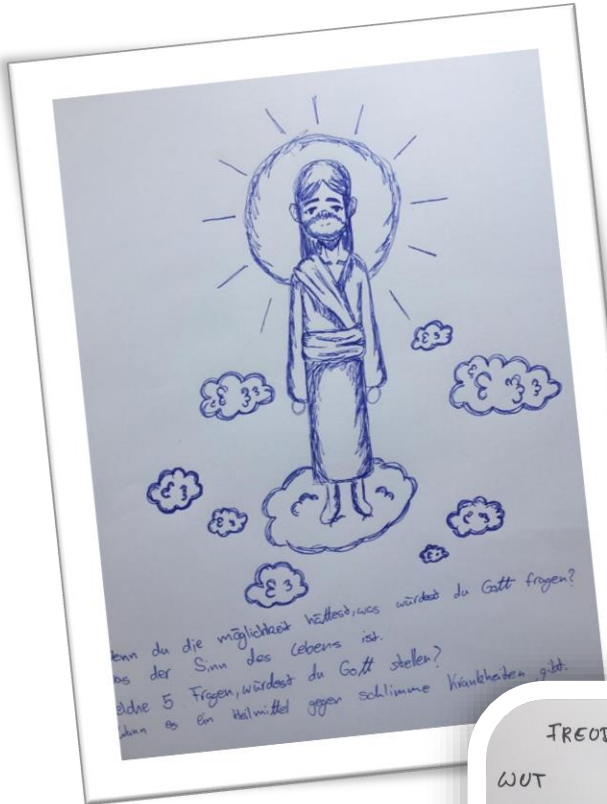 enn du die möglichkeit hättest, was würdest du Gott fragen?
as der Sinn des Lebens ist.
elche 5 Fragen, würdest du Gott stellen?
ann es ein Heilmittel gegen schlimme Krankheiten gibt.
FREU
WUT